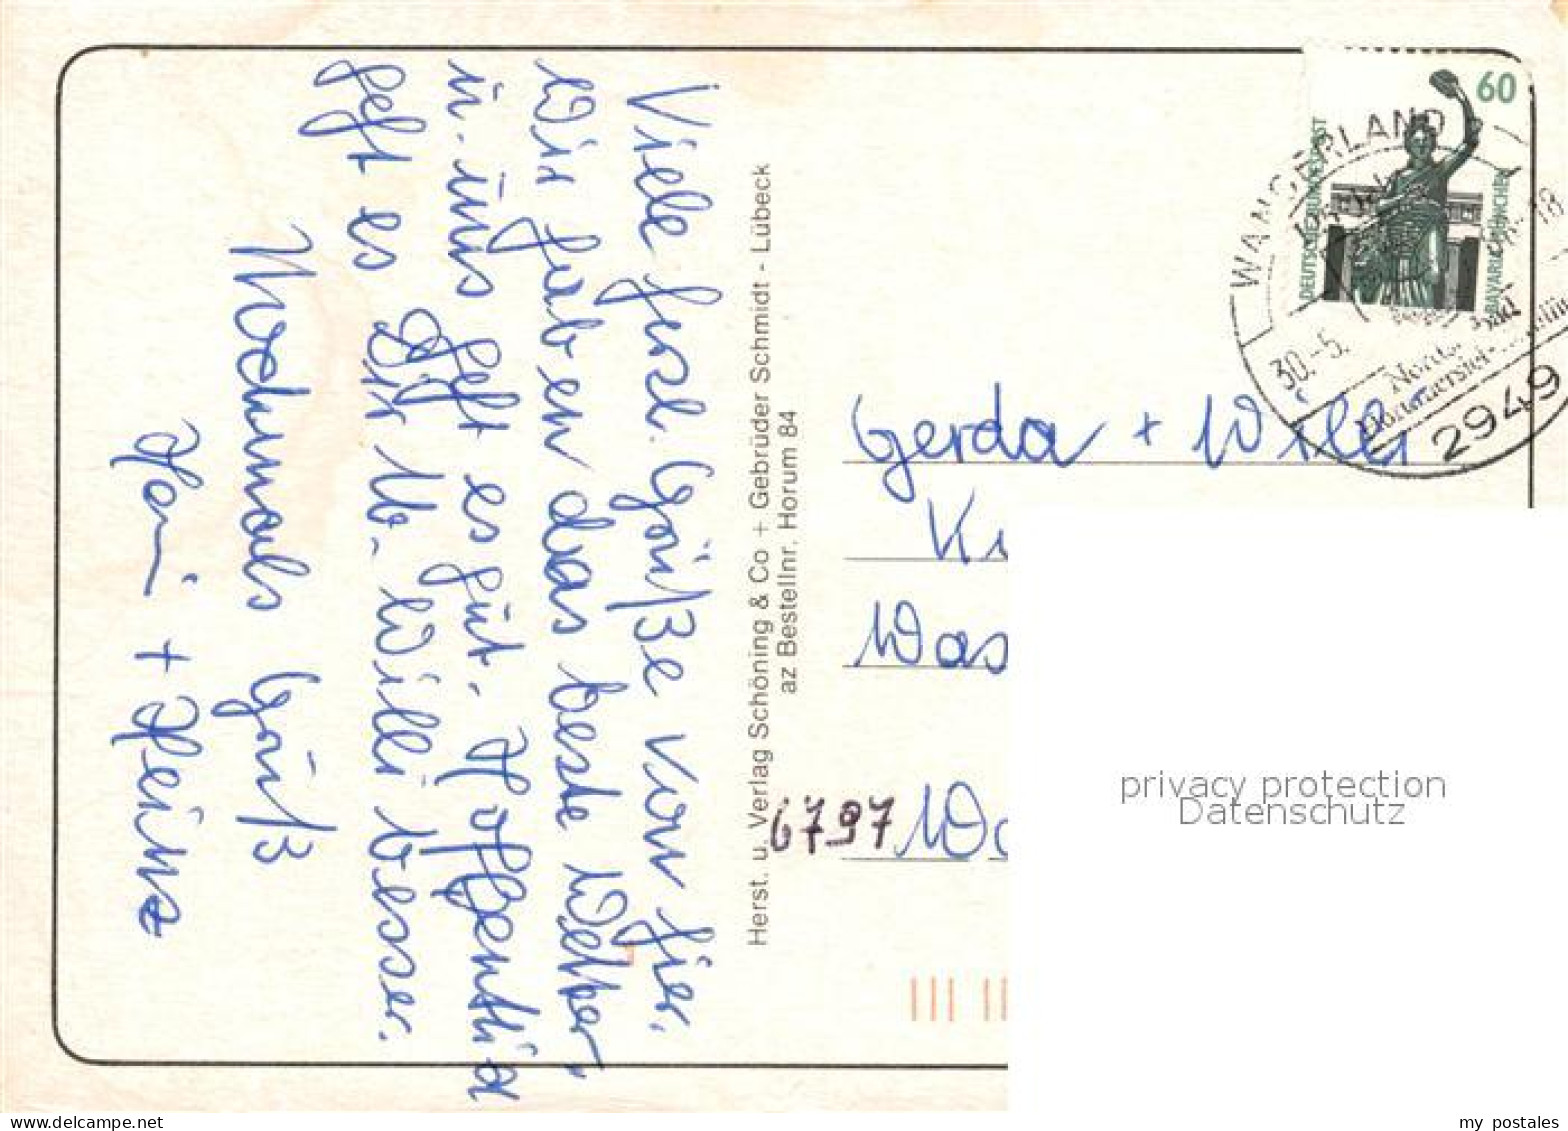 Viele herzl. Grüße von hier.
Wir haben das beste Wetter,
u. uns geht es gut. Hoffentlich
geht es Dir lb. Willi besser.
Nochmals Gruß
+ Heinz
Herst. u. Verlag Schöning & Co + Gebrüder Schmidt - Lübeck
az Bestellnr. Horum 84
60
DEUTSCHE BUNDESPOST
BAVARIA MÜNCHEN
WANGERLAND
30.-5.
18
2949
Gerda + Willi
6797
privacy protection
Datenschutz
my postales